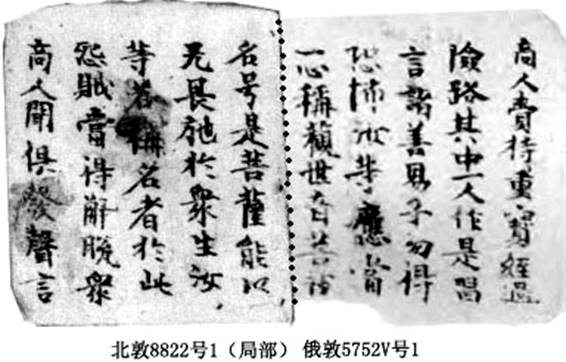 商人賷持重寶經過
險路其中一人作是唱
言諸善男子勿得
恐怖汝等應當
一心稱觀世音菩薩
名号是菩薩能以
无畏施於衆生汝
等若稱名者於此
怨賊當得解脫衆
商人聞俱發聲言
北敦8822号1（局部） 俄敦5752V号1